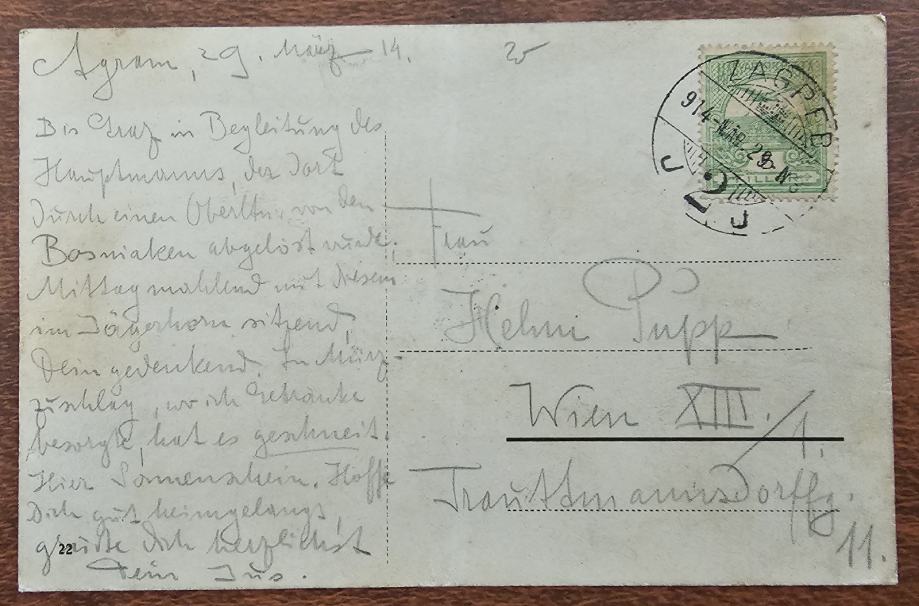 Agram, 29. März 14.
Bis Graz in Begleitung des
Hauptmanns, der dort
durch einen Oberltn. von den
Bosniaken abgelöst wurde.
Mittagmahlend mit diesem
im Jägerhorn sitzend,
Dein gedenkend. In Mürz-
zuschlag, wo ich Getränke
besorgte, hat es geschneit.
Hier Sonnenschein. Hoffe
Dich gut heimgelangt,
grüßte Dich herzlichst
Dein Jus.
22
ZAGREB
914 MÁR. 29
FILLÉR
Frau
Helmi Pupp
Wien XIII./1.
Trauttmannsdorffg.
11.